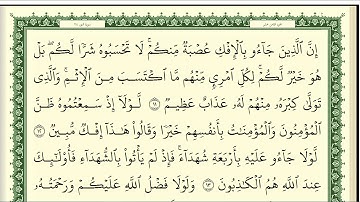 إِنَّ ٱلَّذِينَ جَآءُو بِٱلْإِفْكِ عُصْبَةٌ مِّنكُمْ ۚ لَا تَحْسَبُوهُ شَرًّا لَّكُم ۖ بَلْ
هُوَ خَيْرٌ لَّكُمْ ۚ لِكُلِّ ٱمْرِئٍ مِّنْهُم مَّا ٱكْتَسَبَ مِنَ ٱلْإِثْمِ ۚ وَٱلَّذِى
تَوَلَّىٰ كِبْرَهُۥ مِنْهُمْ لَهُۥ عَذَابٌ عَظِيمٌ ۝١١ لَّوْلَآ إِذْ سَمِعْتُمُوهُ ظَنَّ
ٱلْمُؤْمِنُونَ وَٱلْمُؤْمِنَـٰتُ بِأَنفُسِهِمْ خَيْرًا وَقَالُوا۟ هَـٰذَآ إِفْكٌ مُّبِينٌ ۝١٢
لَّوْلَا جَآءُو عَلَيْهِ بِأَرْبَعَةِ شُهَدَآءَ ۚ فَإِذْ لَمْ يَأْتُوا۟ بِٱلشُّهَدَآءِ فَأُو۟لَـٰٓئِكَ
عِندَ ٱللَّهِ هُمُ ٱلْكَـٰذِبُونَ ۝١٣ وَلَوْلَا فَضْلُ ٱللَّهِ عَلَيْكُمْ وَرَحْمَتُهُۥ